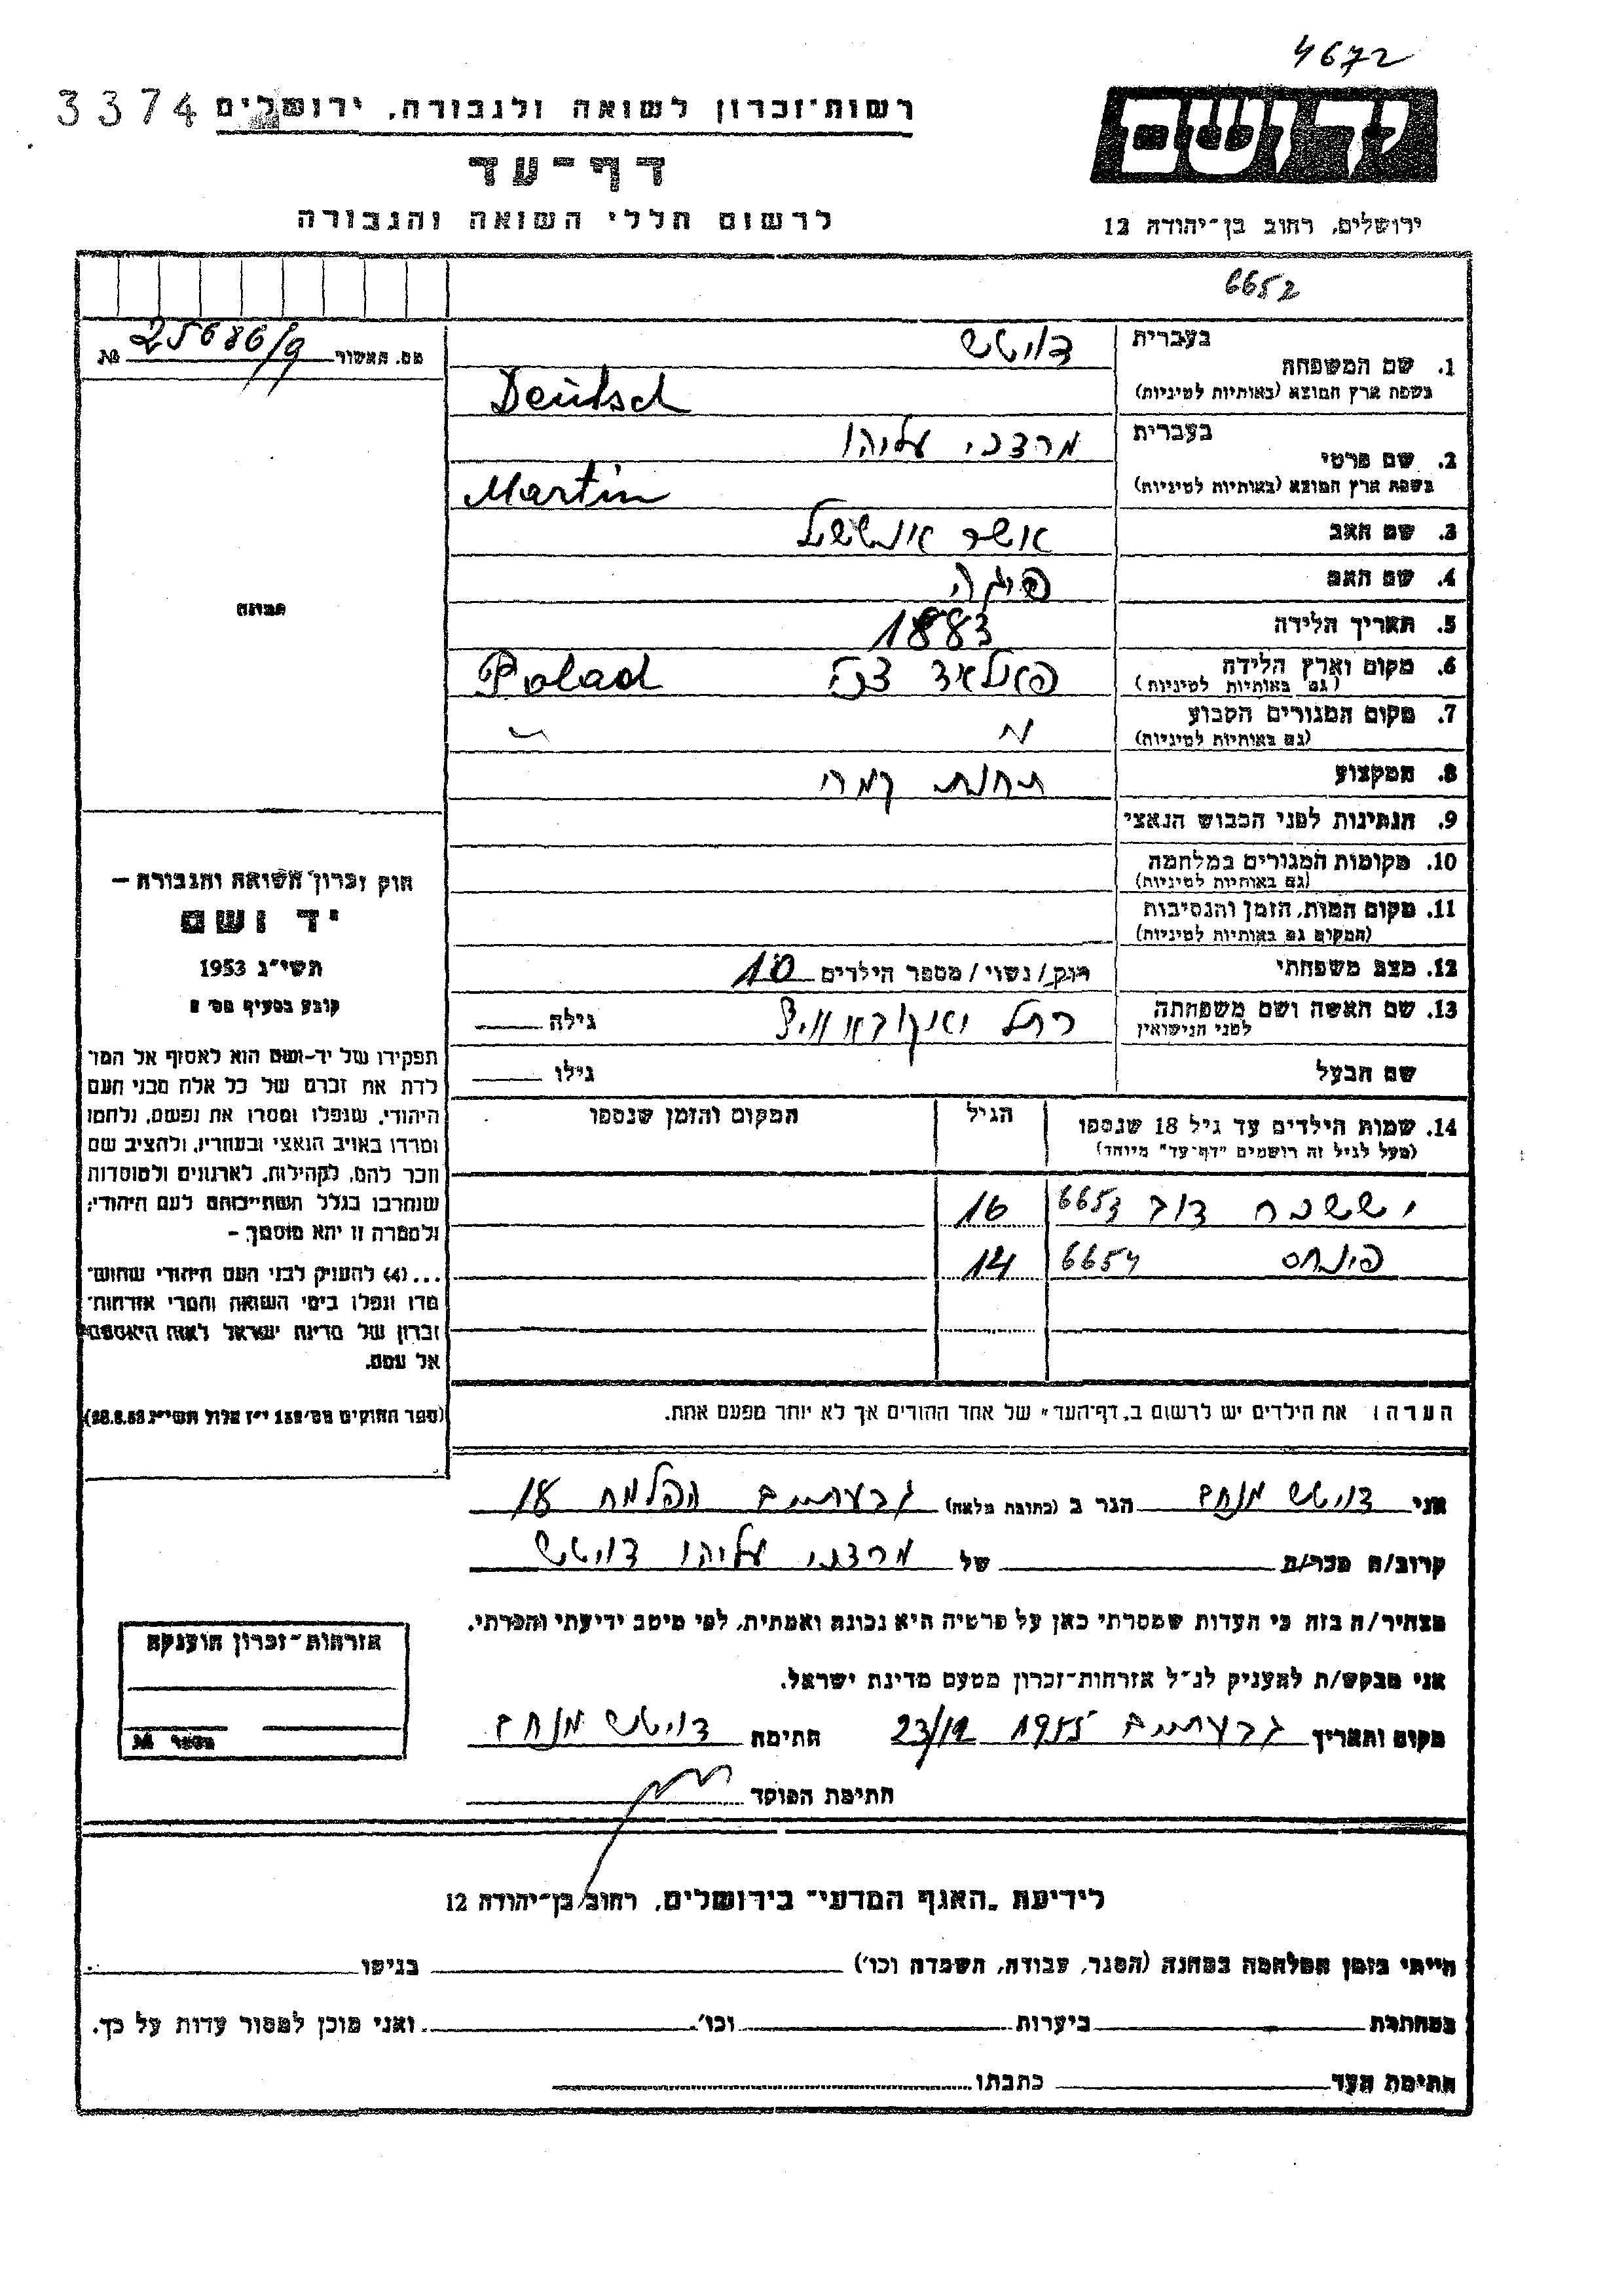 4672
3374 רשות־זכרון לשואה ולגבורה, ירושלים
יד ושם
דף-עד
לרשום חללי השואה והגבורה
ירושלים, רחוב בן־יהודה 12
6652
מס. האשור 25686/9 №
1. שם המשפחה
בעברית דויטש
בשפת ארץ המוצא (באותיות לטיניות) Deutsch
2. שם פרטי
בעברית מרדכי עליהו
בשפת ארץ המוצא (באותיות לטיניות) Martin
3. שם האב אשר אנששל
4. שם האם פיגה
5. תאריך הלידה 1883
6. מקום וארץ הלידה
(גם באותיות לטיניות) פאלאד Polad
7. מקום המגורים הקבוע
(גם באותיות לטיניות) "
8. המקצוע תחנת קמח
9. הנתינות לפני הכבוש הנאצי
10. מקומות המגורים במלחמה
(גם באותיות לטיניות)
11. מקום המות, הזמן והנסיבות
(המקום גם באותיות לטיניות)
12. מצב משפחתי רוק/נשוי/מספר הילדים 10
13. שם האשה ושם משפחתה
לפני הנישואין רחל יאקובאוויץ גילה
שם הבעל גילו
14. שמות הילדים עד גיל 18 שנספו הגיל המקום והזמן שנספו
(מעל לגיל זה רושמים "דף־עד" מיוחד)
יששכר דוב 6653 16
פינחס 6654 14
הערה: את הילדים יש לרשום ב„דף־העד" של אחד ההורים אך לא יותר מפעם אחת.
תמונה
חוק זכרון השואה והגבורה –
יד ושם
תשי"ג 1953
קובע בסעיף מס' 2
תפקידו של יד-ושם הוא לאסוף אל המו־
לדת את זכרם של כל אלה מבני העם
היהודי, שנפלו ומסרו את נפשם, נלחמו
ומרדו באויב הנאצי ובעוזריו, ולהציב שם
וזכר להם, לקהילות, לארגונים ולמוסדות
שנחרבו בגלל השתייכותם לעם היהודי;
ולמטרה זו יהא מוסמך –
...(4) להעניק לבני העם היהודי שהוש־
מדו ונפלו בימי השואה והמרי אזרחות־
זכרון של מדינת ישראל לאות היאספם
אל עמם.
(ספר החוקים מס' 132 י"ז אלול תשי"ג 28.8.53)
אני דויטש מנחם הגר ב (כתובת מלאה) גבעתיים הפלמח 18
קרוב/ה מכר/ת של מרדכי עליהו דויטש
מצהיר/ה בזה כי העדות שמסרתי כאן על פרטיה היא נכונה ואמתית, לפי מיטב ידיעתי והכרתי.
אני מבקש/ת להעניק לנ"ל אזרחות־זכרון מטעם מדינת ישראל.
מקום ותאריך גבעתיים 1955 23/12 חתימה דויטש מנחם
חתימת הפוקד
אזרחות־זכרון הוענקה
מספר №
לידיעת „האגף המדעי" בירושלים, רחוב בן־יהודה 12
הייתי בזמן המלחמה במחנה (הסגר, עבודה, השמדה וכו') בגיטו
במחתרת ביערות וכו'. ואני מוכן למסור עדות על כך.
חתימת העד כתבתו